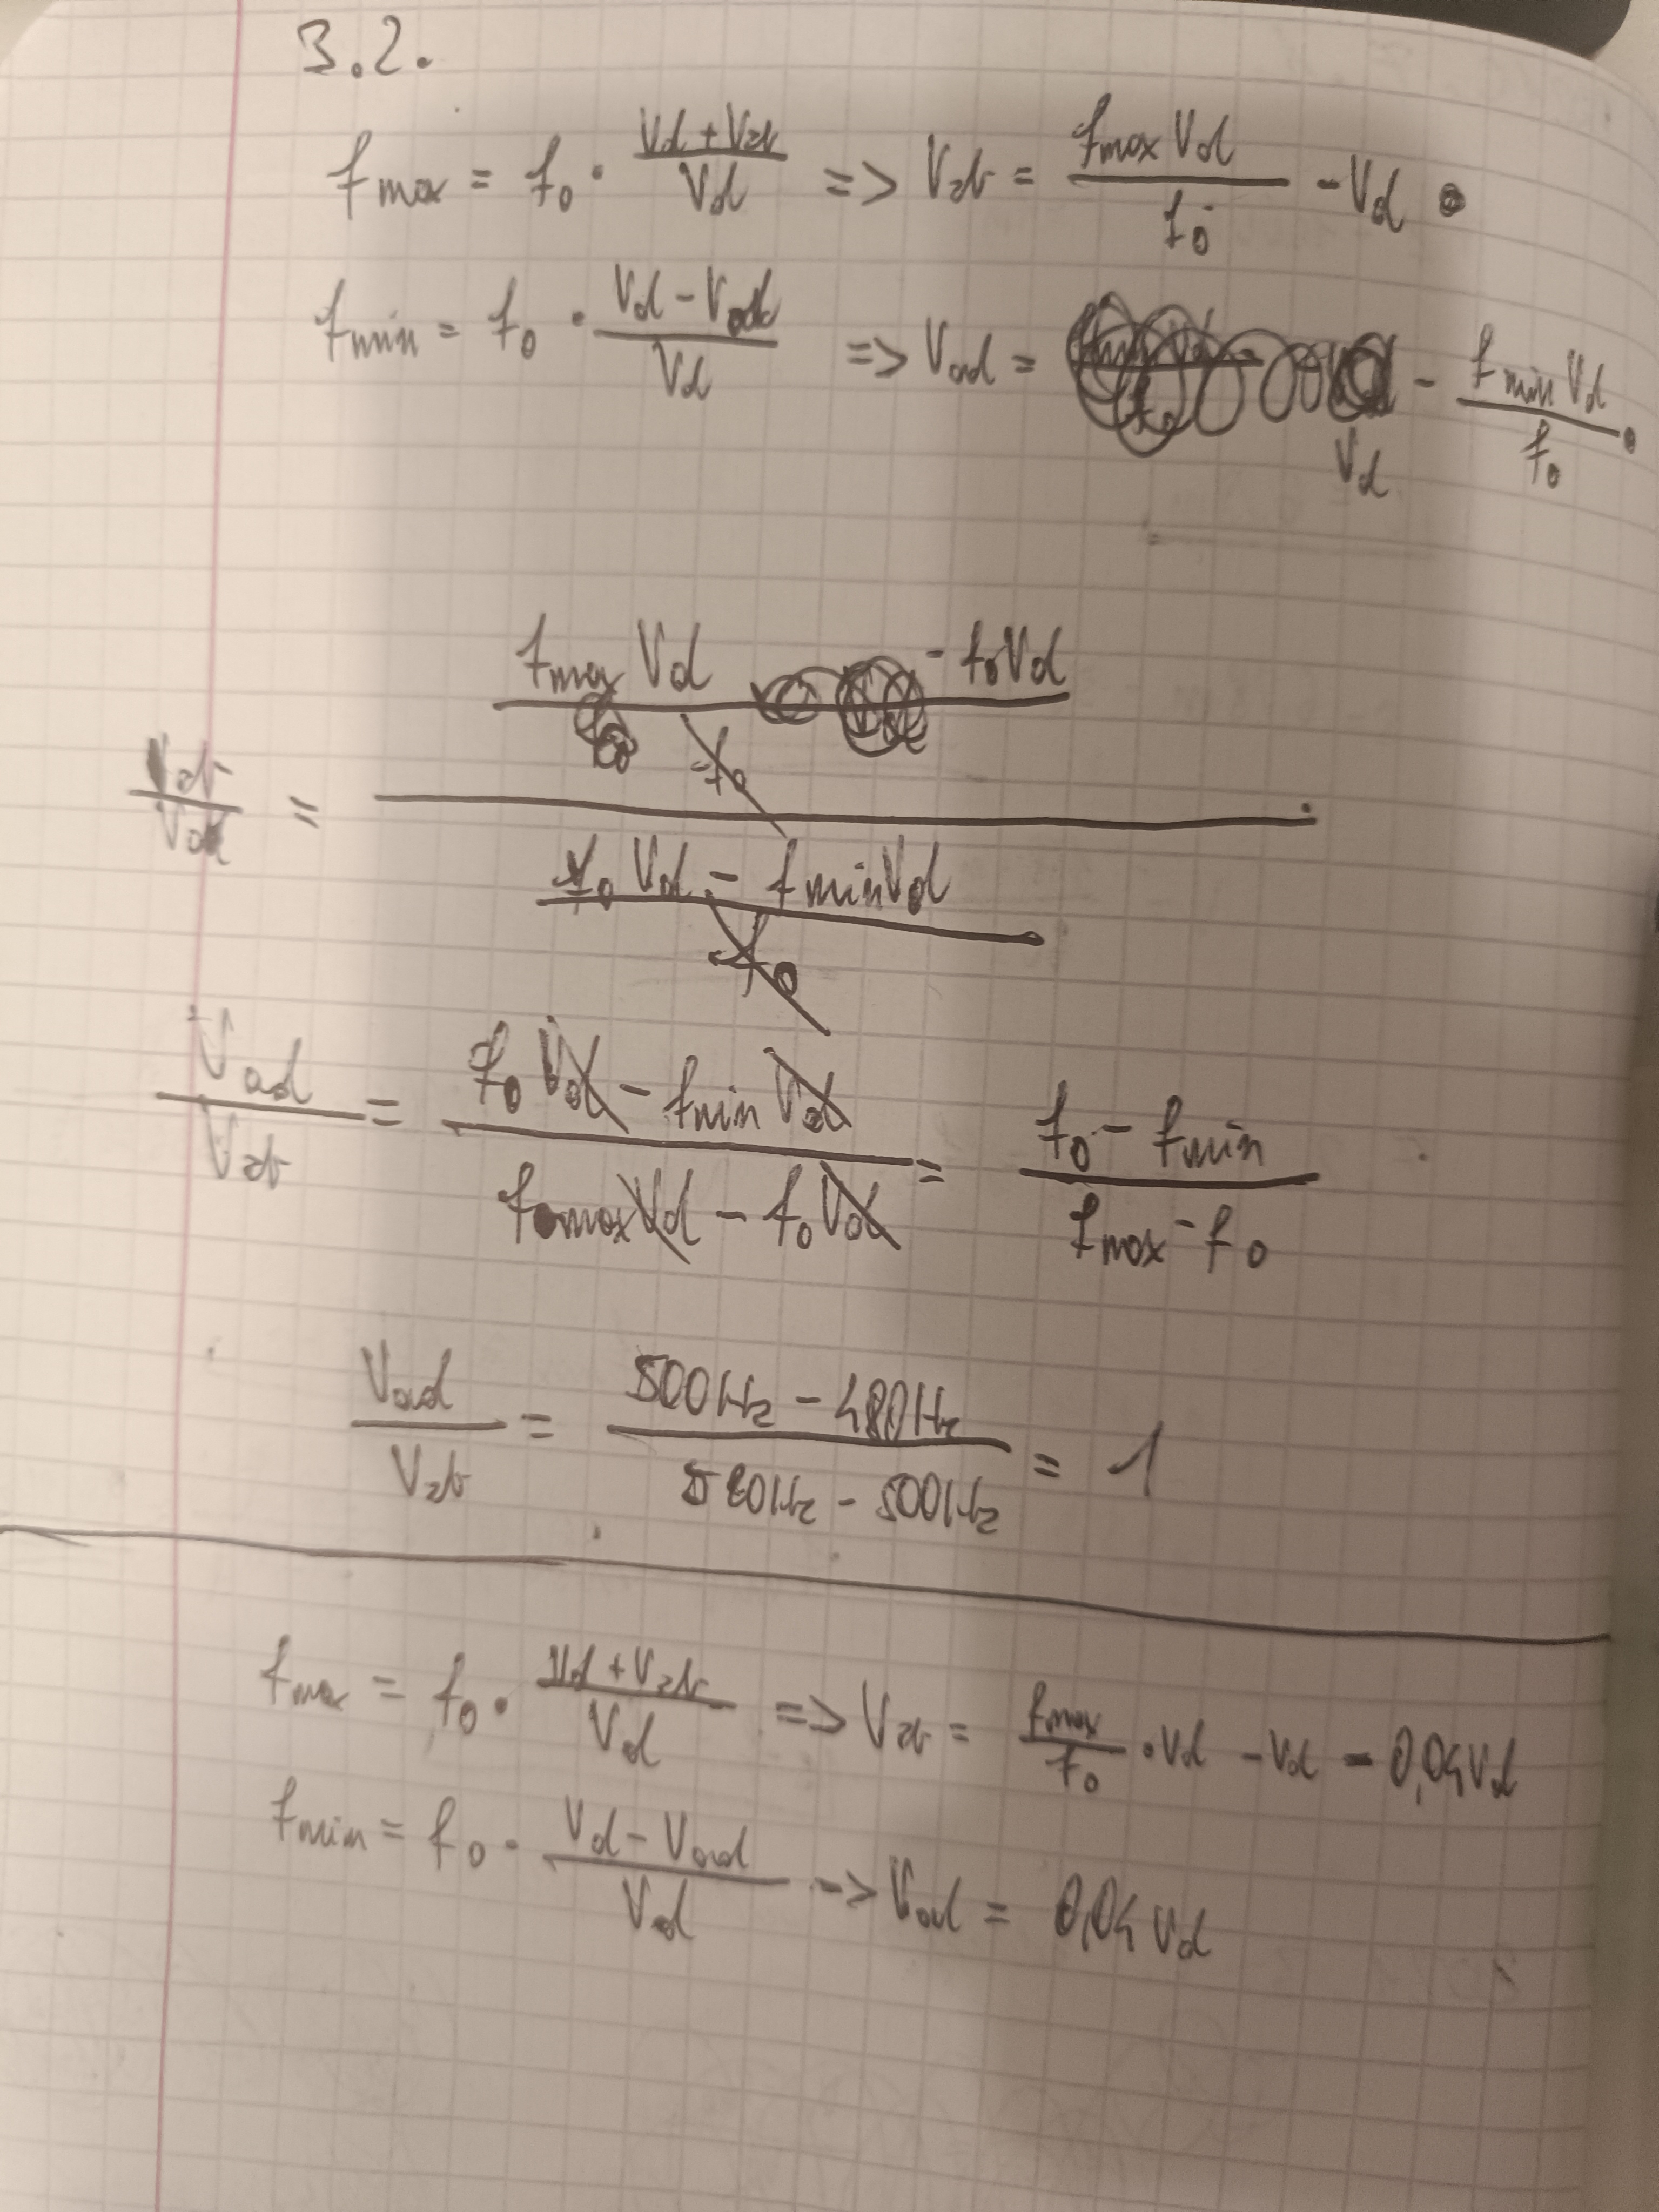 3.2.
f max = f₀ · (Vd + Vzb)/Vd => Vzb = (fmax Vd)/f₀ - Vd
fmin = f₀ · (Vd - Vod)/Vd => Vod = Vd - (fmin Vd)/f₀
Vzb/Vod = ((fmax Vd - f₀Vd)/f₀)/((f₀ Vd - fminVd)/f₀)
Vod/Vzb = (f₀ Vd - fmin Vd)/(fmax Vd - f₀ Vd) = (f₀ - fmin)/(fmax - f₀)
Vod/Vzb = (500Hz - 480Hz)/(520Hz - 500Hz) = 1
fmax = f₀ · (Vd + Vzb)/Vd => Vzb = fmax/f₀ · Vd - Vd = 0,04Vd
fmin = f₀ · (Vd - Vod)/Vd -> Vod = 0,04 Vd